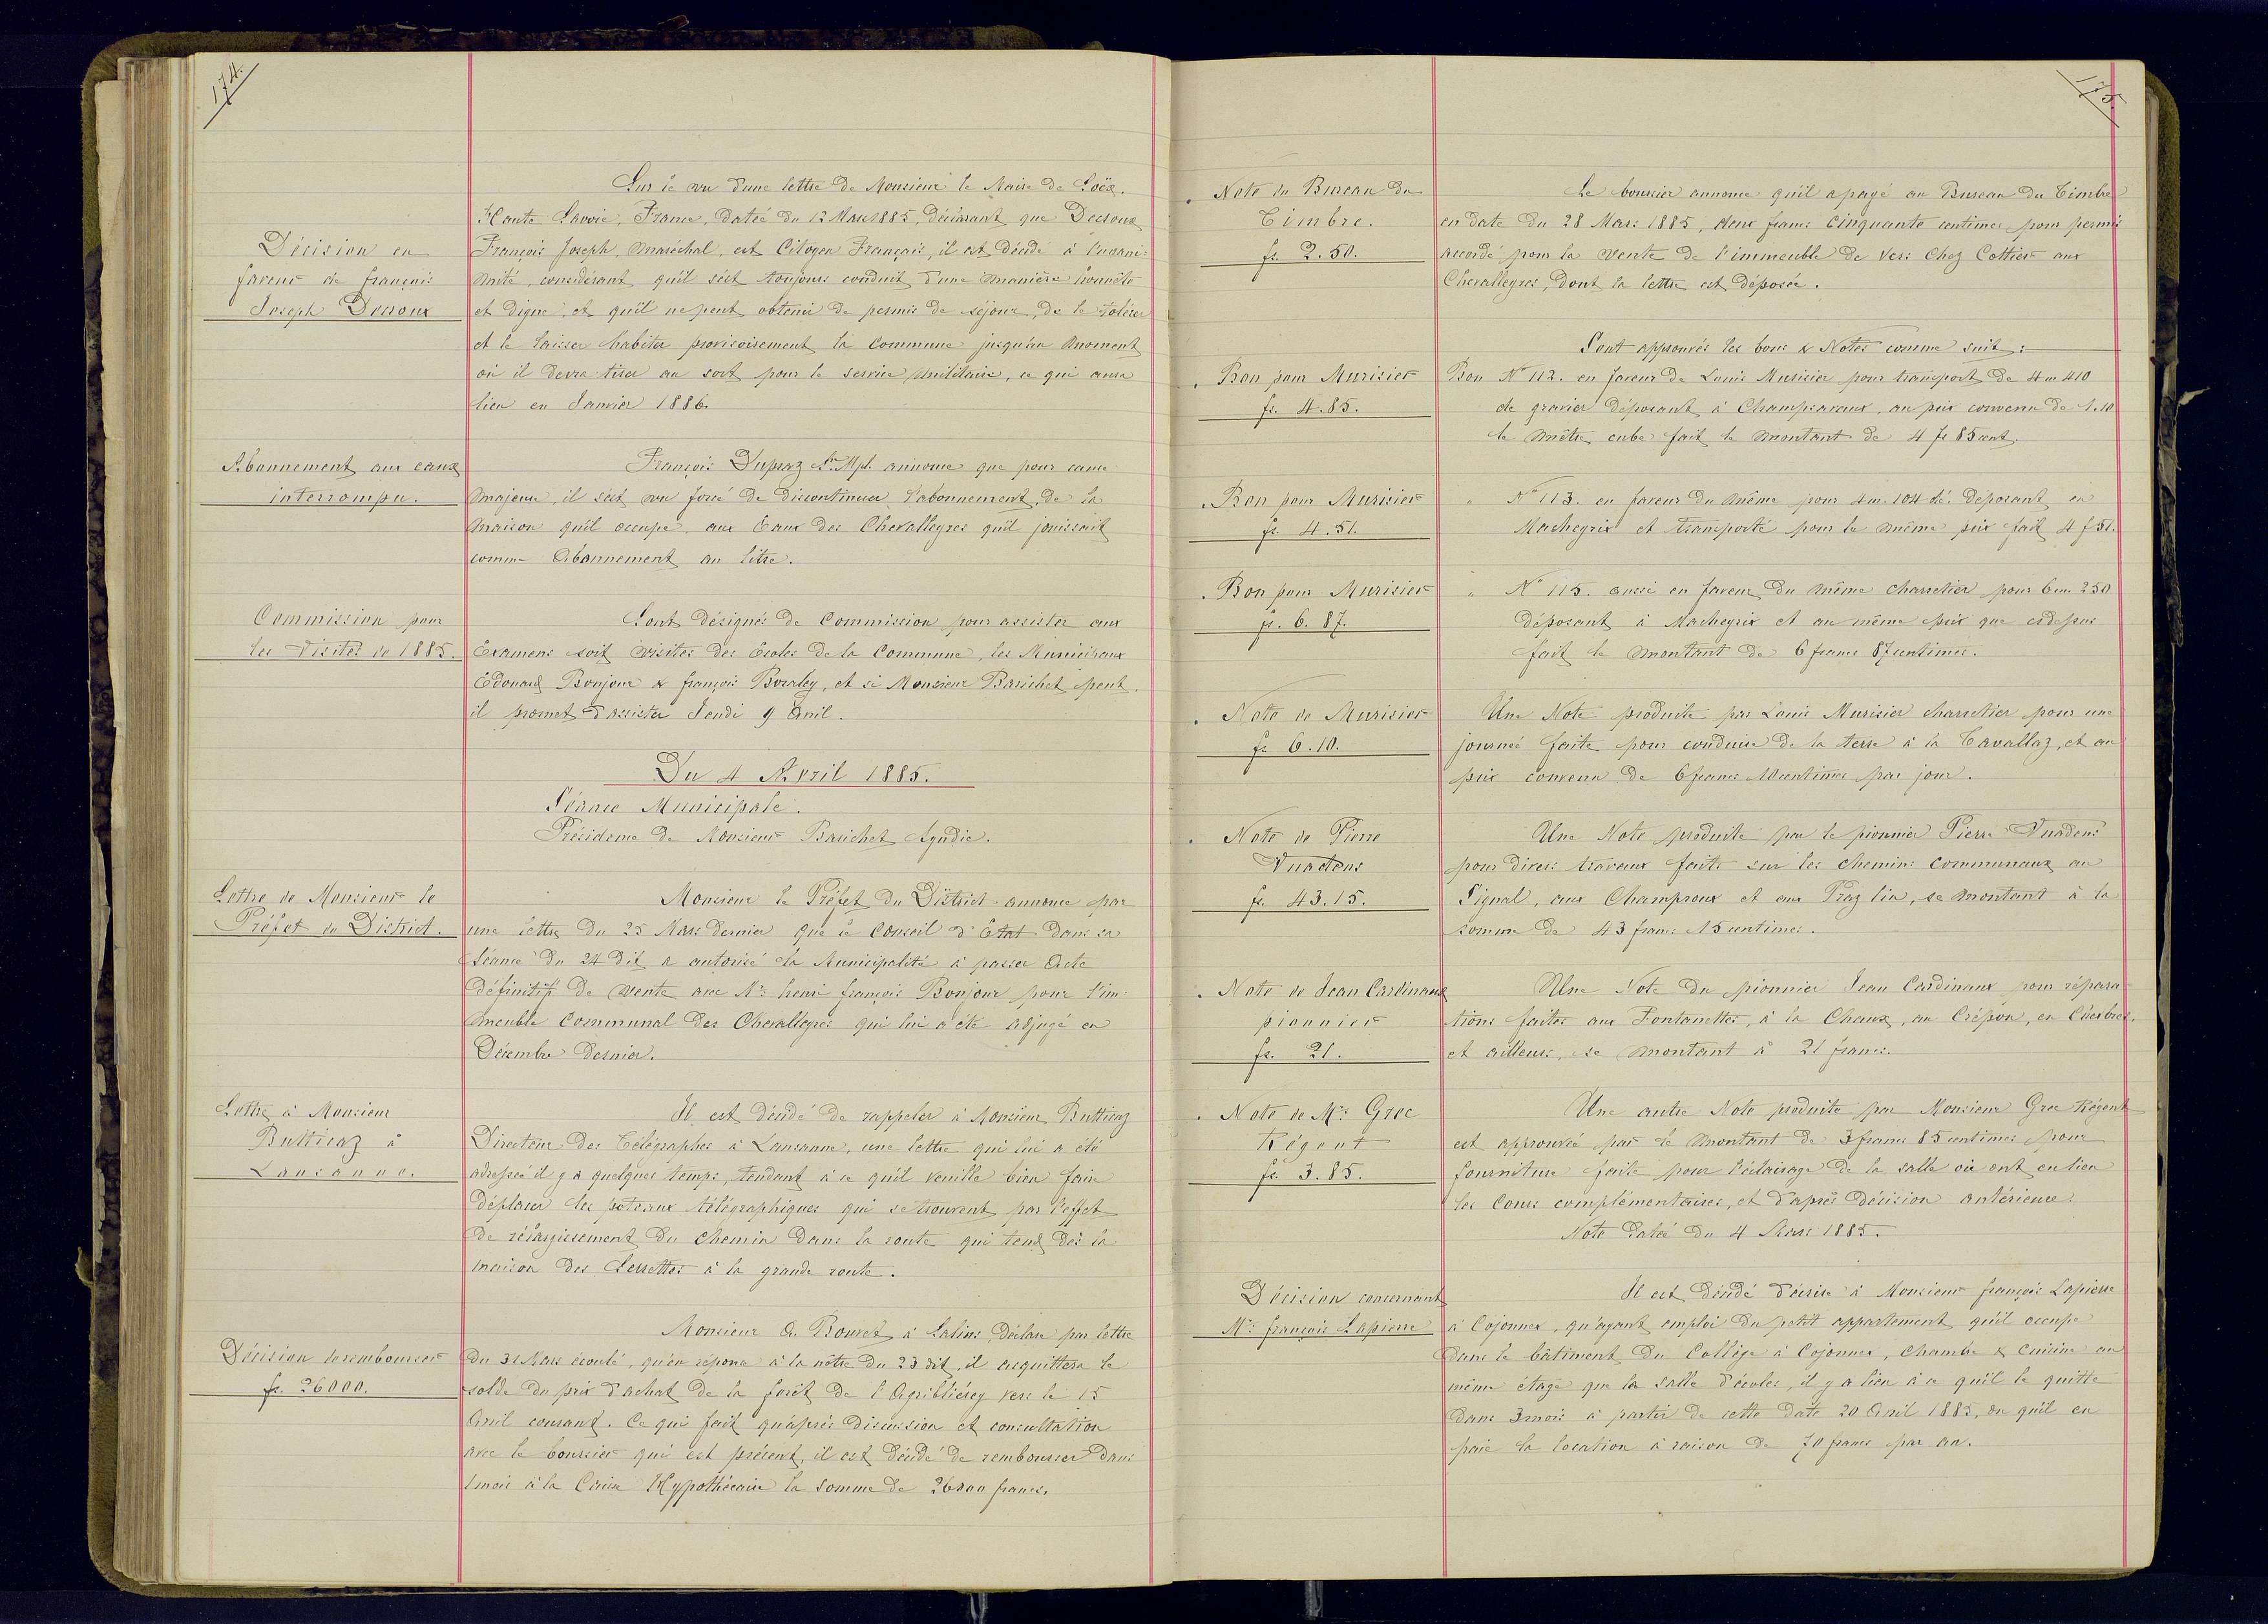 174.
Sur le vu d'une lettre de Monsieur le Maire de Loëx.
Haute Savoie, France, datée du 12 Mars 1885, déclarant que Decroux
Décision en
faveur de françois
Joseph Decroux
François Joseph, maréchal, est Citoyen Français, il est décidé à l'unani-
mité, considérant qu'il s'est toujours conduit d'une manière honnête
et digne, et qu'il ne peut obtenir de permis de séjour, de le tolérer
et le laisser habiter provisoirement la Commune jusqu'au moment
où il devra tirer au sort pour le service militaire, ce qui aura
lieu en Janvier 1886.
Abonnement aux eaux
interrompu.
François Dupraz annonce que pour cause
majeure, il s'est vu forcé de discontinuer l'abonnement de la
maison qu'il occupe, aux Eaux des Chevalleyres qu'il jouissait
comme Abonnement au litre.
Commission pour
les Visites de 1885.
Sont désignés de Commission pour assister aux
Examens soit visites des Ecoles de la Commune, les Municipaux
Edouard Bonjour & françois Bovaley, et si Monsieur Barichet peut,
il promet d'assister Jeudi 9 Avril.
Du 4 Avril 1885.
Séance Municipale.
Présidence de Monsieur Barichet Syndic.
Lettre de Monsieur le
Préfet du District.
Monsieur le Préfet du District annonce par
une lettre du 25 Mars dernier que le Conseil d'Etat dans sa
Séance du 24 dit a autorisé la Municipalité à passer Acte
définitif de vente avec Mr. henri françois Bonjour pour l'im-
meuble Communal des Chevalleyres qui lui a été adjugé en
Décembre dernier.
Lettre à Monsieur
Butticaz à
Lausanne.
Il est décidé de rappeler à Monsieur Butticaz
Directeur des Télégraphes à Lausanne, une lettre qui lui a été
adressée il y a quelques temps, tendant à ce qu'il veuille bien faire
déplacer les poteaux télégraphiques qui se trouvent par l'effet
de rélargissement du Chemin dans la route qui tend dès la
maison des Serrettes à la grande route.
Décision de rembourser
fr. 26000.
Monsieur A. Bouvet à Salins, déclare par lettre
du 31 Mars écoulé, qu'en réponse à la nôtre du 23 dit, il acquittera le
solde du prix d'achat de la forêt de l'Agrilliérey vers le 15
Avril courant. Ce qui fait qu'après discussion et consultation
avec le boursier qui est présent, il est décidé de rembourser dans
1 mois à la Caisse Hypothécaire la somme de 26000 francs.
175.
Note du Bureau du
Timbre.
fr. 2.50.
Le boursier annonce qu'il a payé au Bureau du Timbre
en date du 28 Mars 1885, deux francs Cinquante centimes pour permis
accordé pour la vente de l'immeuble de Vers Chez Cottier aux
Chevalleyres, dont la lettre est déposée.
Sont approuvés les bons & Notes comme suit:
Bon pour Murisier
fr. 4.85.
Bon No 112. en faveur de Louis Murisier pour transport de 4 m 410
de gravier déposant à Champsavaux, au prix convenu de 1.10
le mètre cube fait le montant de 4 fr 85 cent.
Bon pour Murisier
fr. 4.51.
" No 113. en faveur du même pour 4 m. 104 dé. déposant en
Macheyrix et transporté pour le même prix fait 4 f 51.
Bon pour Murisier
fr. 6.87.
" No 115. aussi en faveur du même charretier pour 6 m. 250
déposant à Macheyrix et au même prix que cidessus
fait le montant de 6 francs 87 centimes.
Note de Murisier
fr. 6.10.
Une Note produite par Louis Murisier charretier pour une
journée faite pour conduire de la terre à la Cavallaz, et au
prix convenu de 6 francs 10 centimes par jour.
Note de Pierre
Vuadens
fr. 43.15.
Une Note produite par le pionnier Pierre Vuadens
pour divers travaux faits sur les chemins communaux au
Signal, aux Champroux et aux Praz lia, se montant à la
somme de 43 francs 15 centimes.
Note de Jean Cardinaux
pionnier
fr. 21.
Une Note du pionnier Jean Cardinaux pour répara-
tions faites aux Fontanettes, à la Chaux, au Crépon, en
et ailleurs, se montant à 21 francs.
Note de Mr. Grec
Régent
fr. 3.85.
Une autre Note produite par Monsieur Grec Régent
est approuvée par le montant de 3 francs 85 centimes pour
fourniture faite pour l'éclairage de la salle où ont eu lieu
les Cours complémentaires, et d'après décision antérieure.
Note datée du 4 Mars 1885.
Décision concernant
Mr. françois Lapierre
Il est décidé d'écrire à Monsieur françois Lapierre
à Cojonnex, qu'ayant emploi du petit appartement qu'il occupe
dans le bâtiment du Collège à Cojonnex, Chambre & Cuisine au
même étage que la salle d'écoles, il y a lieu à ce qu'il le quitte
dans 3 mois à partir de cette date 20 Avril 1885, ou qu'il en
paie la location à raison de 70 francs par an.